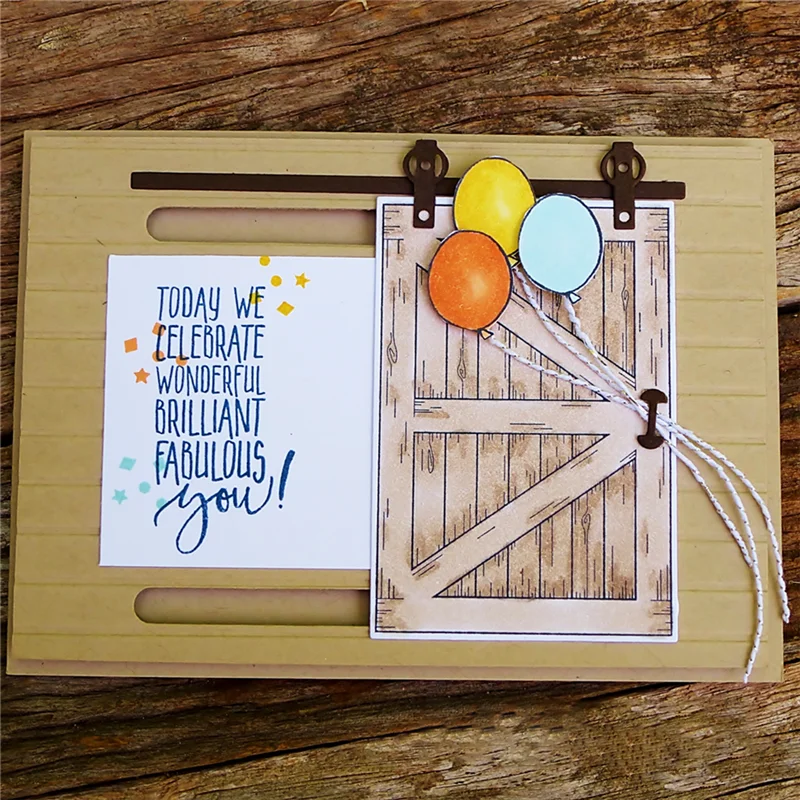 TODAY WE
CELEBRATE
WONDERFUL
BRILLIANT
FABULOUS
you!